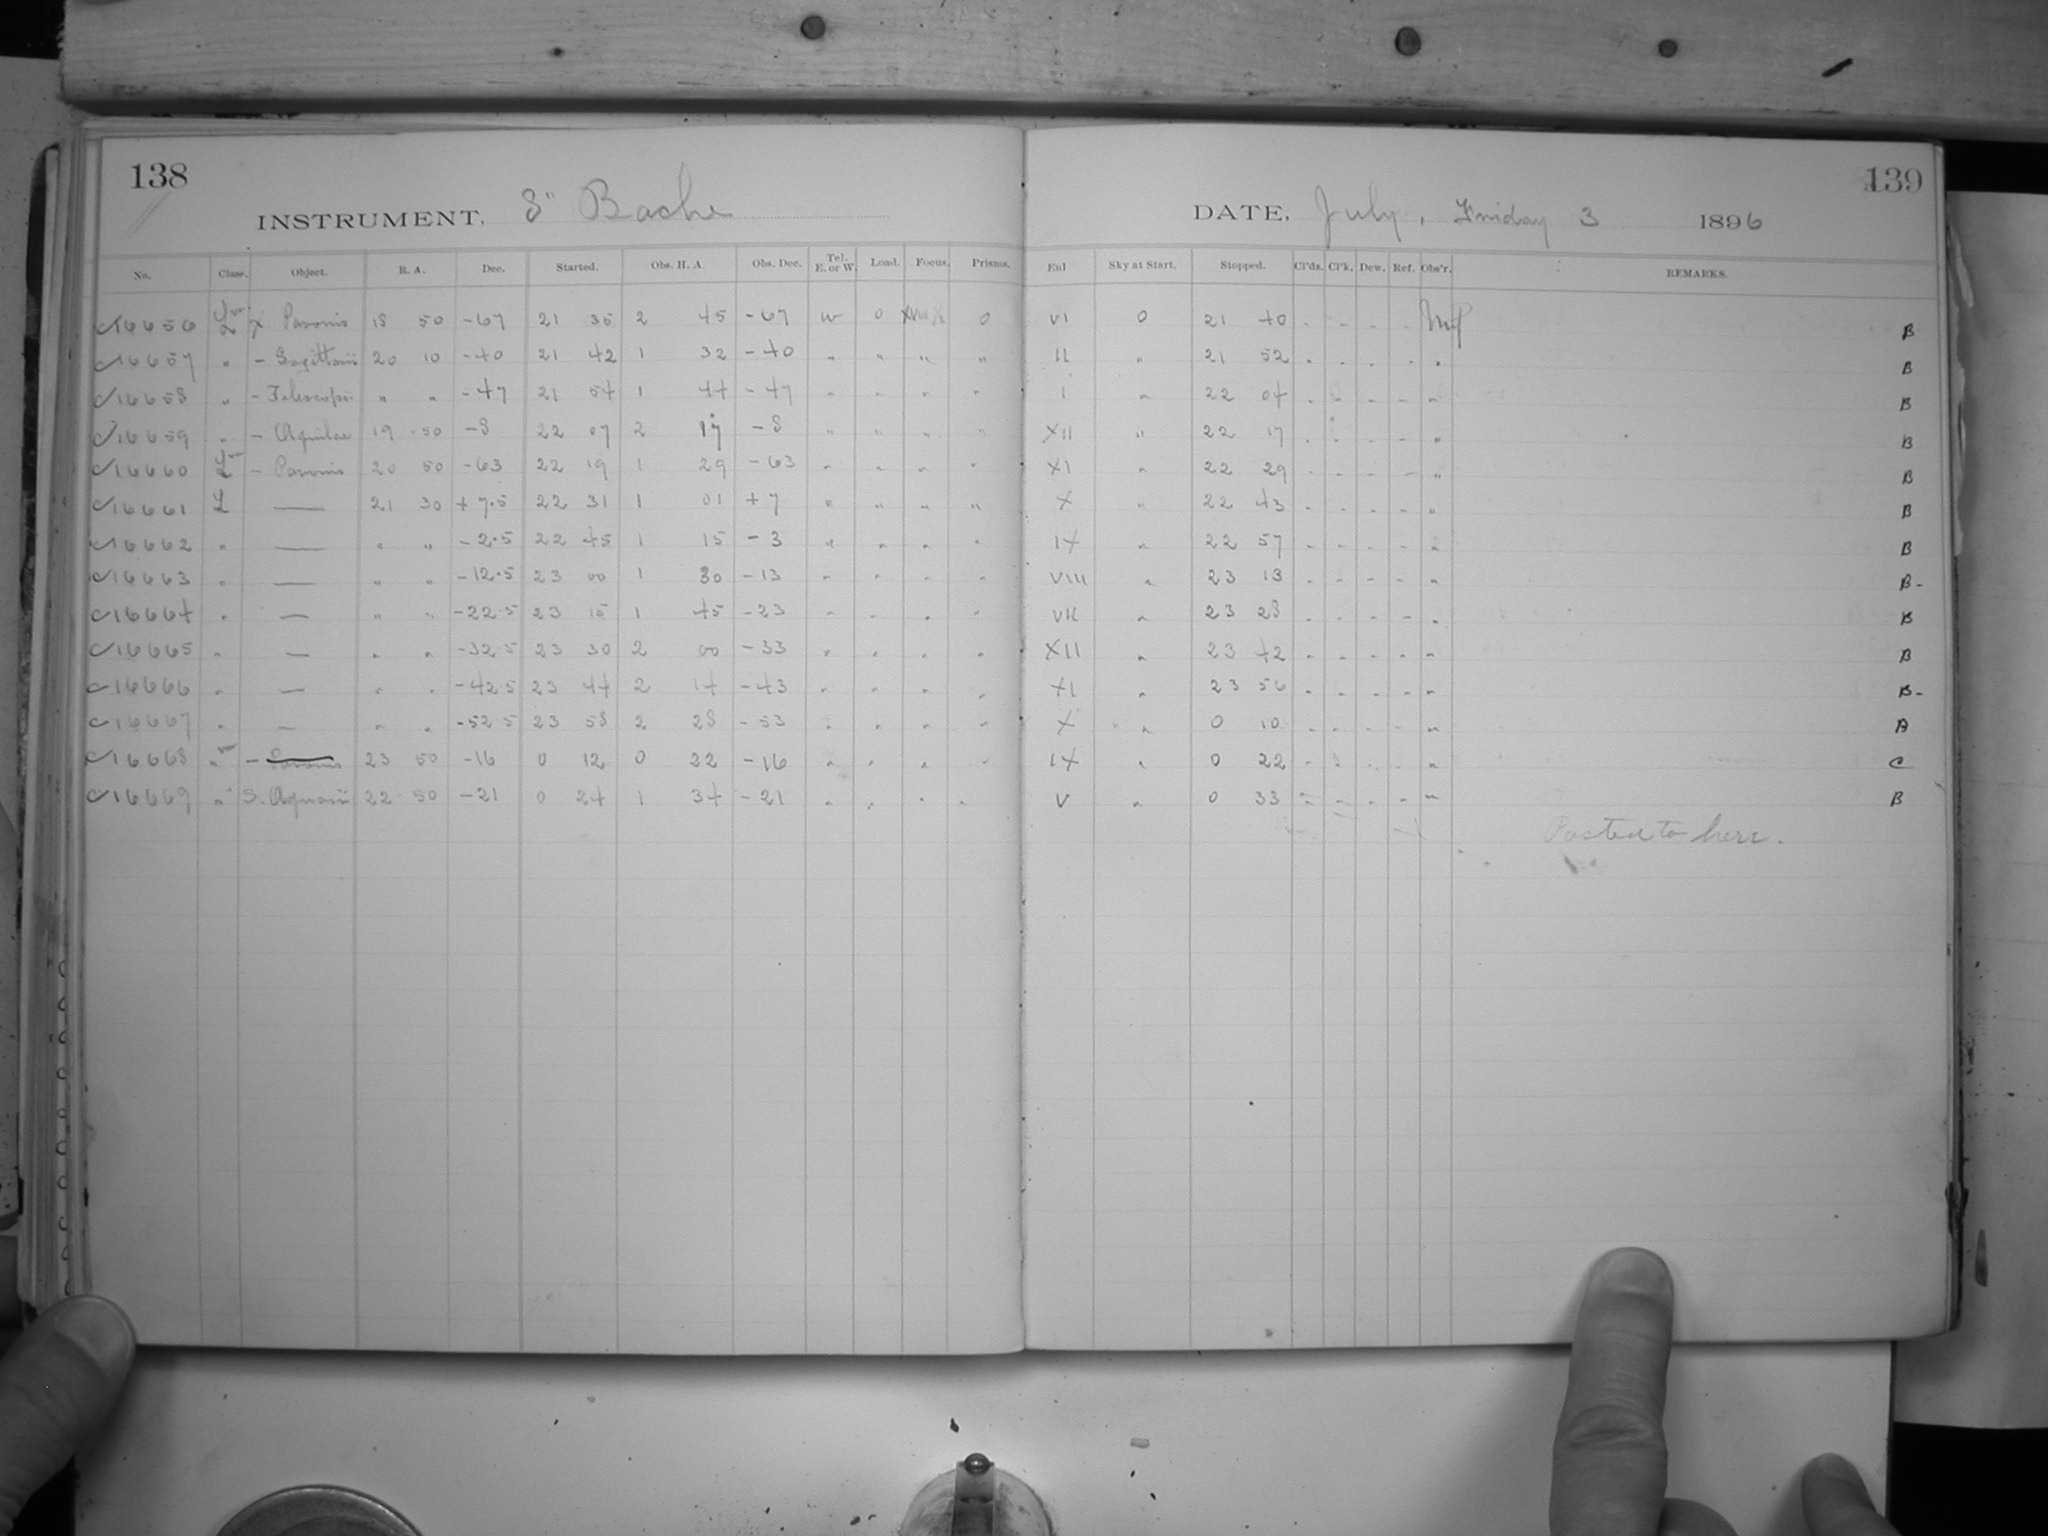 138
INSTRUMENT, 8" Bache
No. Class. Object. R. A. Dec. Started. Obs. H. A. Obs. Dec. Tel. E. or W. Load. Focus. Prisms.
16656 Pavonis 18 50 -67 21 35 2 45 -67 W 0 0
16657 " - Sagittarii 20 10 -40 21 42 1 32 -40 " " " "
16658 " - Telescopii " " -47 21 54 1 44 -47 " " " "
16659 " - Aquilae 19 50 -8 22 07 2 17 -8 " " " "
16660 - Pavonis 20 50 -63 22 19 1 29 -63 " " " "
16661 L — 21 30 +7.5 22 31 1 01 +7 " " " "
16662 " — " " -2.5 22 45 1 15 -3 " " " "
16663 " — " " -12.5 23 00 1 30 -13 " " " "
16664 " — " " -22.5 23 15 1 45 -23 " " " "
16665 " — " " -32.5 23 30 2 00 -33 " " " "
16666 " — " " -42.5 23 44 2 14 -43 " " " "
16667 " — " " -52.5 23 58 2 28 -53 " " " "
16668 " - 23 50 -16 0 12 0 22 -16 " " " "
16669 " S. Aquarii 22 50 -21 0 24 1 34 -21 " " " "
139
DATE, July, Friday 3 1896
Sky at Start. Stopped. Cl'ds. Cl'k. Dew. Ref. Obs'r. REMARKS.
VI 0 21 40 - - - - B
II " 21 52 - - - - " B
I " 22 04 - - - - " B
XII " 22 17 - - - - " B
XI " 22 29 - - - - " B
X " 22 43 - - - - " B
IX " 22 57 - - - - " B
VIII " 23 13 - - - - " B-
VII " 23 28 - - - - " B
XII " 23 42 - - - - " B
XI " 23 56 - - - - " B-
X " 0 10 - - - - " A
IX " 0 22 - - - - " C
V " 0 33 - - - - " B
Posted to here.